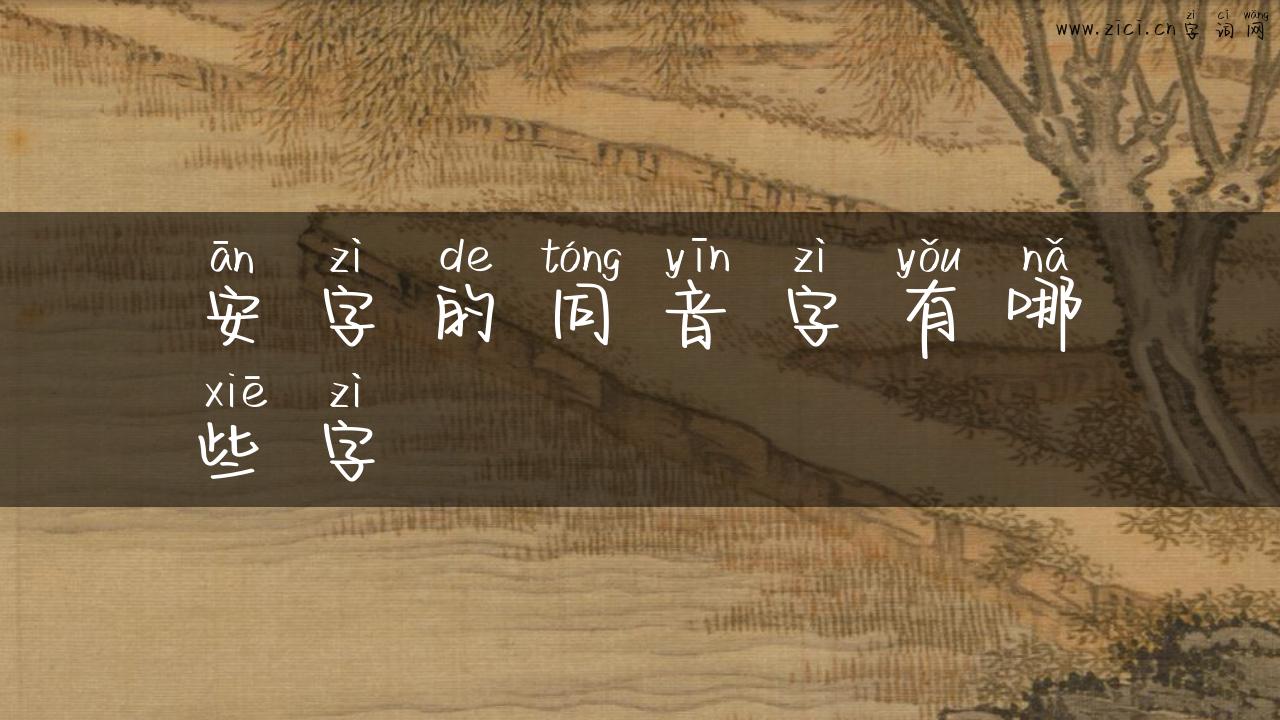 zì cí wǎng
www.zici.cn字词网
ān zì de tóng yīn zì yǒu nǎ
安字的同音字有哪
xiē zì
些字